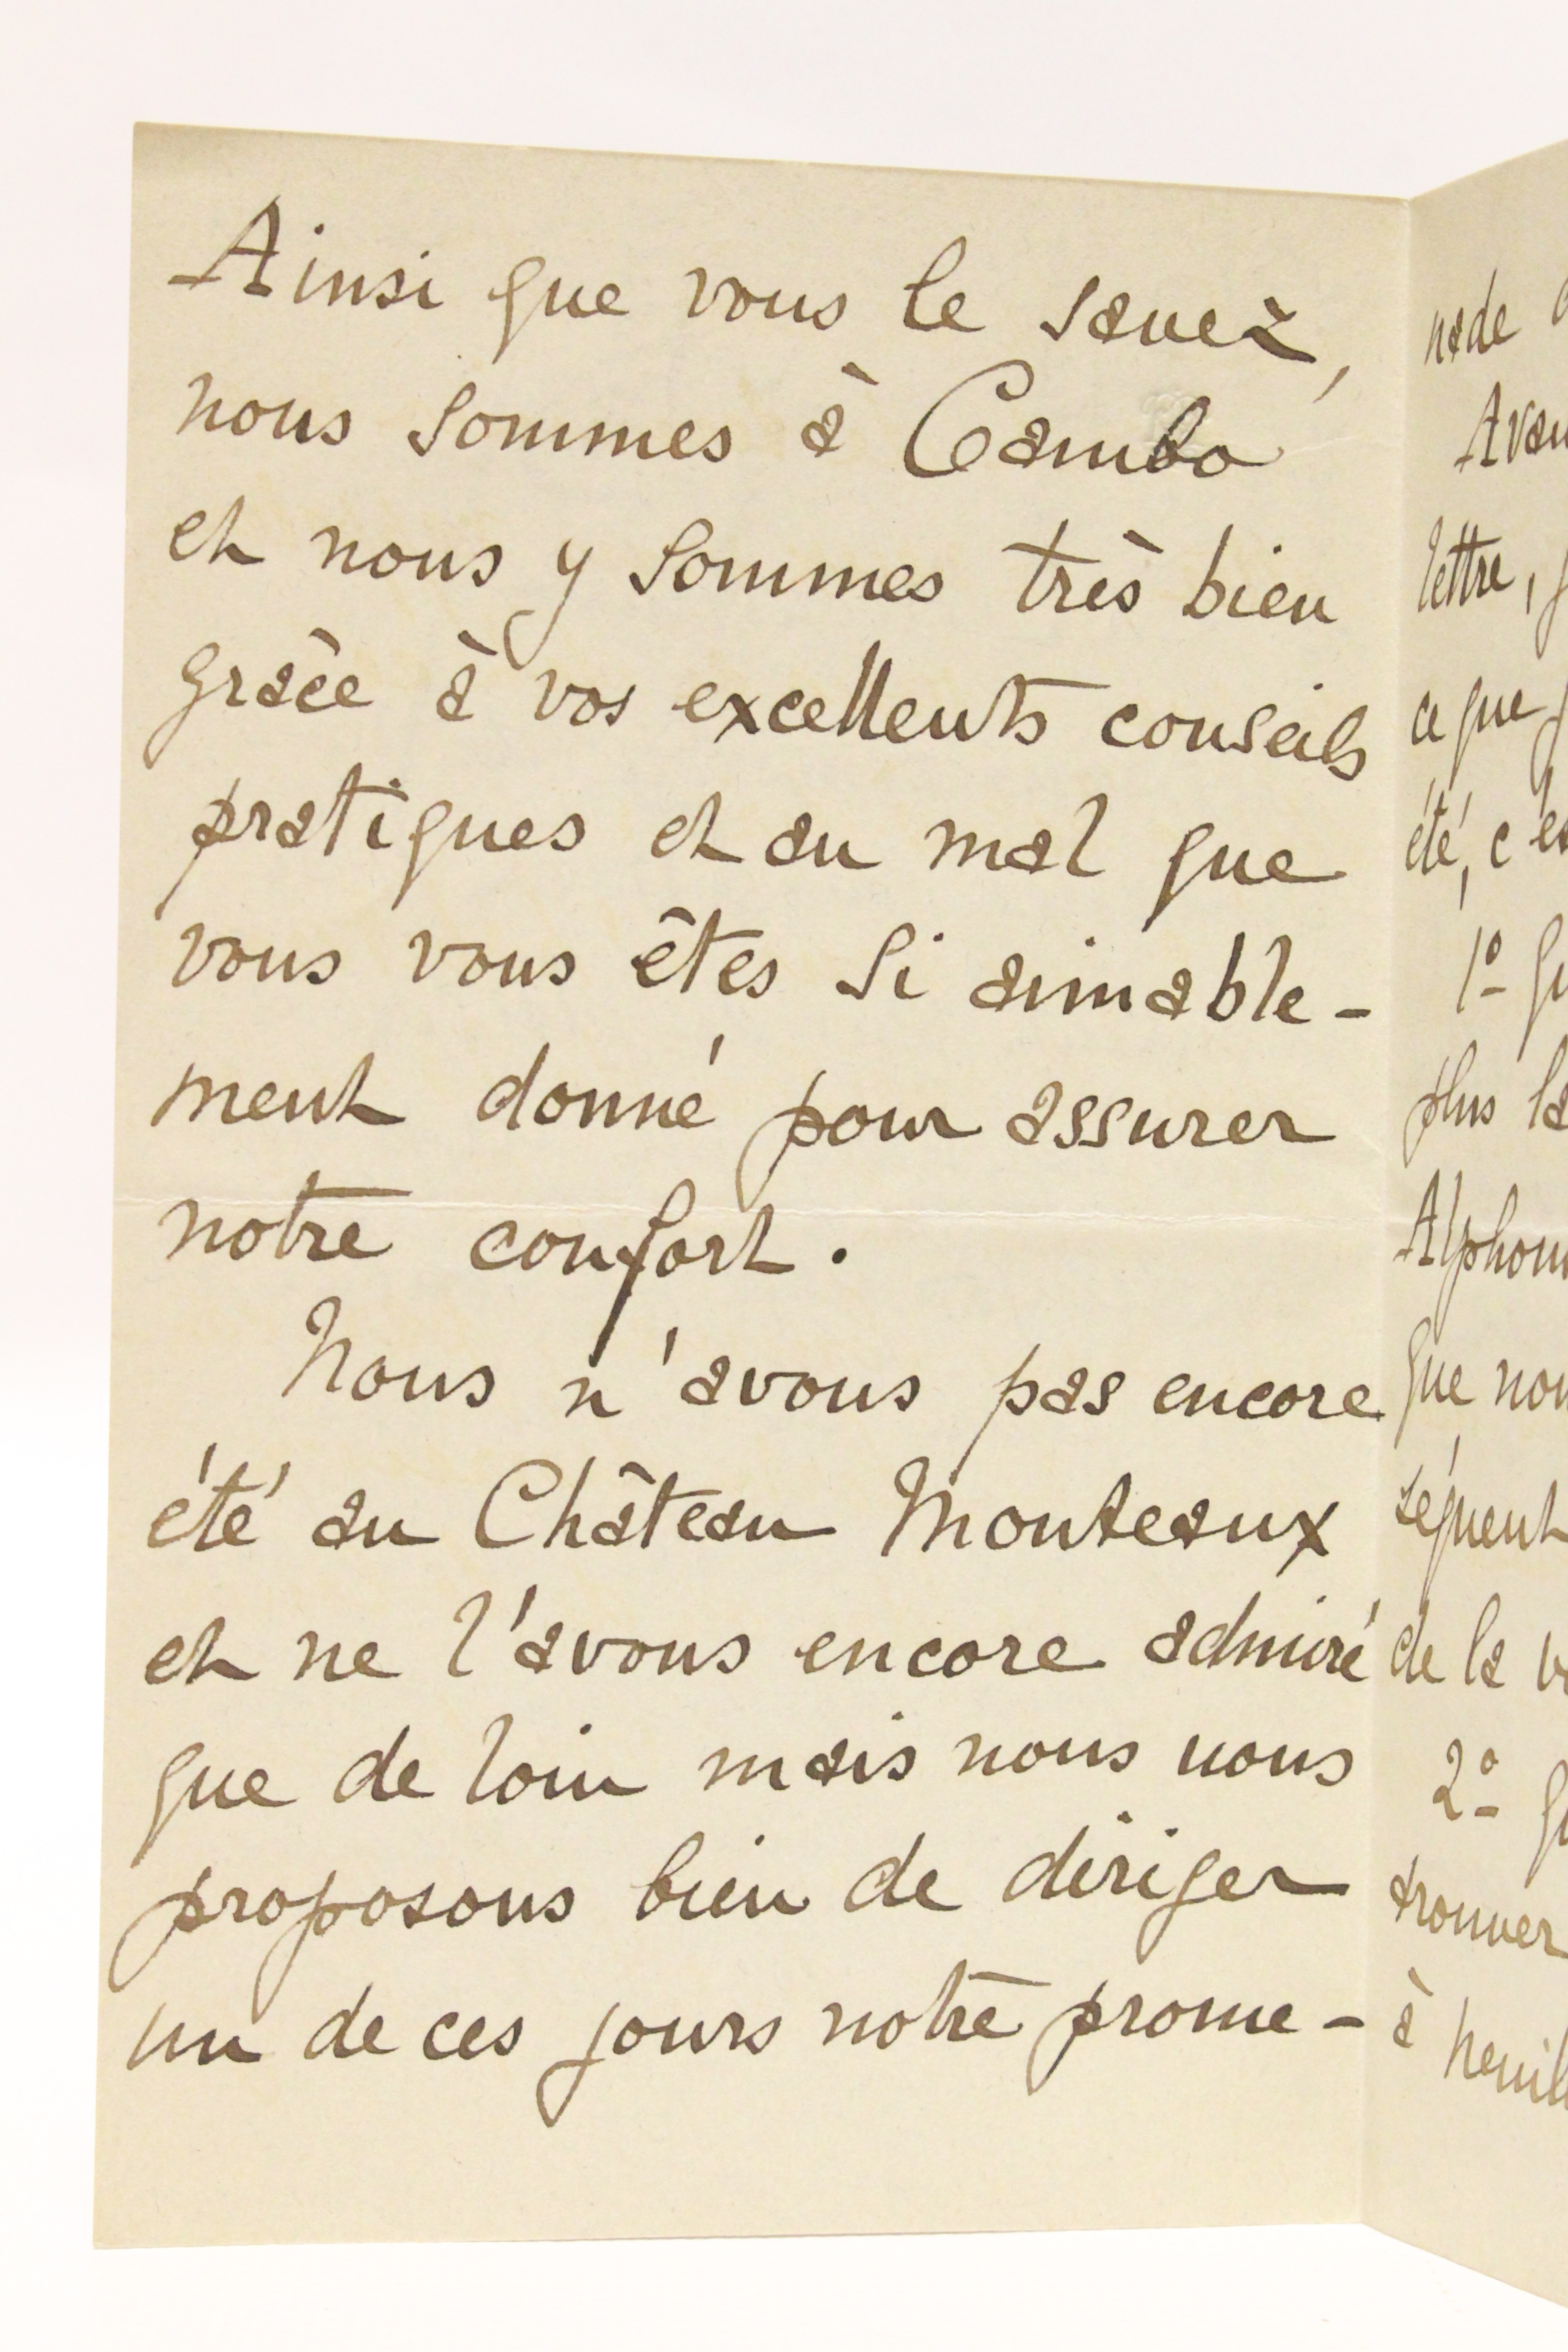 Ainsi que vous le savez,
nous sommes à Cambo
et nous y sommes très bien
grâce à vos excellents conseils
pratiques et au mal que
vous vous êtes si aimable-
ment donné pour assurer
notre confort.
Nous n'avons pas encore
été au Château Monteaux
et ne l'avons encore admiré
que de loin mais nous nous
proposons bien de diriger
un de ces jours notre prome-
nade
Avan
lettre,
ce que
été, c'es
1º qu
plus la
Alphon
que nou
séquent
de la
2º
trouver
à Neuil